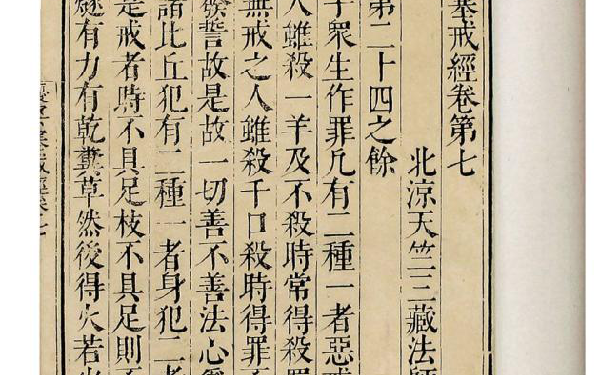 塞戒經卷第七
北涼天竺三藏法師
第二十四之餘
子衆生作罪凡有二種一者惡戒
人雖殺一羊及不殺時常得殺罪
無戒之人雖殺千口殺時得罪不
發誓故是故一切善不善法心爲
諸比丘犯有二種一者身犯二者
是戒者時不具足枝不具足則不
燧有力有乾糞草然後得火若
優婆塞戒經卷七